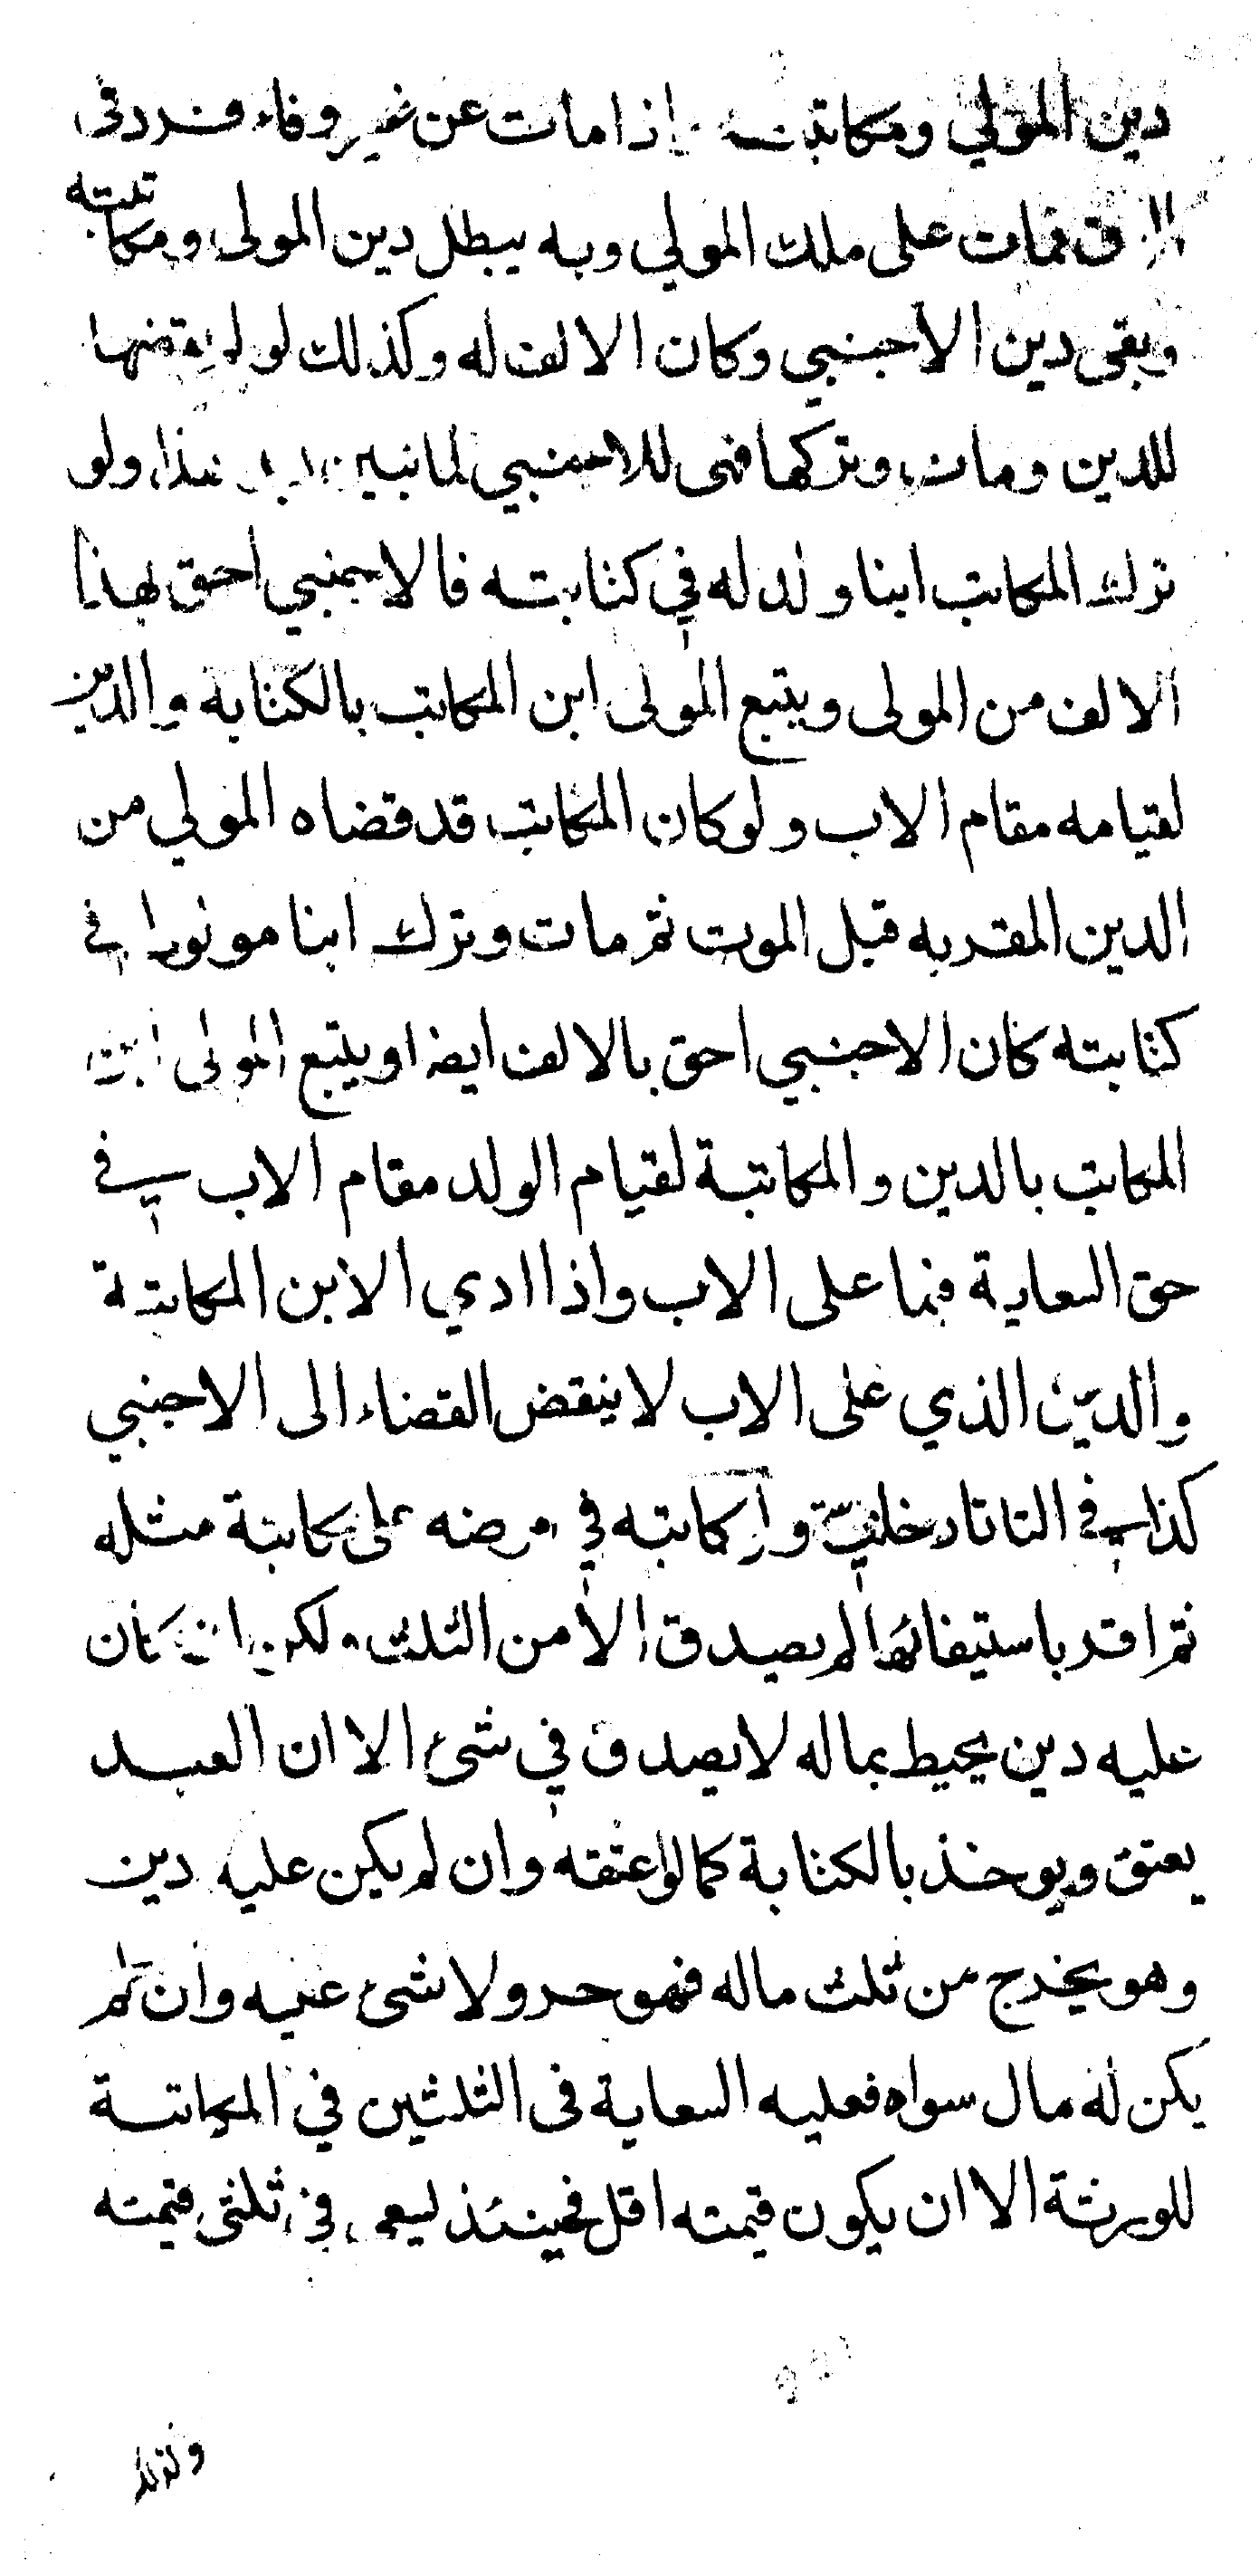 دين المولي ومكاتبته اذا مات عن غير وفاء فرد في
الرق فمات على ملك المولي وبه يبطل دين المولى ومكاتبته
وبقى دين الاجنبي وكان الالف له وكذلك لو لم يقضها
للدين ومات وتركها فهى للاجنبي لما تبين ولو
ترك المكاتب ابنا ولد له في كتابته فالاجنبي احق بهذا
الالف من المولى ويتبع المولى ابن المكاتب بالكتابة والدين
لقيامه مقام الاب ولو كان المكاتب قد قضاه المولي من
الدين المقر به قبل الموت ثم مات وترك ابنا مونورا في
كتابته كان الاجنبي احق بالالف ايضا ويتبع المولى ابن
المكاتب بالدين والمكاتبة لقيام الولد مقام الاب في
حق السعاية فيما على الاب واذا ادي الابن المكاتبة
والدين الذي على الاب لا ينقض القضاء الى الاجنبي
كذا في التاتارخانية وان كاتبه في مرضه على مكاتبة مثله
ثم اقر باستيفائها لم يصدق الا من الثلث ولكن ان كان
عليه دين يحيط بماله لا يصدق في شئ الا ان العبد
يعتق ويوخذ بالكتابة كما لو اعتقه وان لم يكن عليه دين
وهو يخرج من ثلث ماله فهو حر ولا شئ عليه وان لم
يكن له مال سواه فعليه السعاية فى الثلثين في المكاتبة
للورثة الا ان يكون قيمته اقل فحينئذ ليسعى في ثلثى قيمته